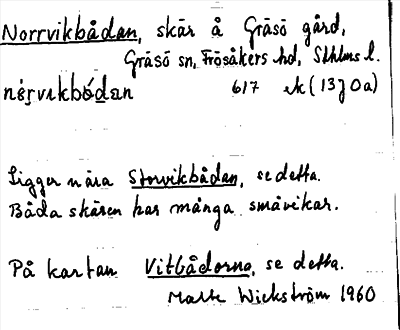 Norrvikbådan, skär å Gräsö gård,
Gräsö sn, Frösåkers hd, Sthlms l.
617 ek (13J0a)
Ligger nära Storvikbådan, se detta.
Båda skären har många småvikar.
På kartan Vitbådorna, se detta.
Matts Wickström 1960